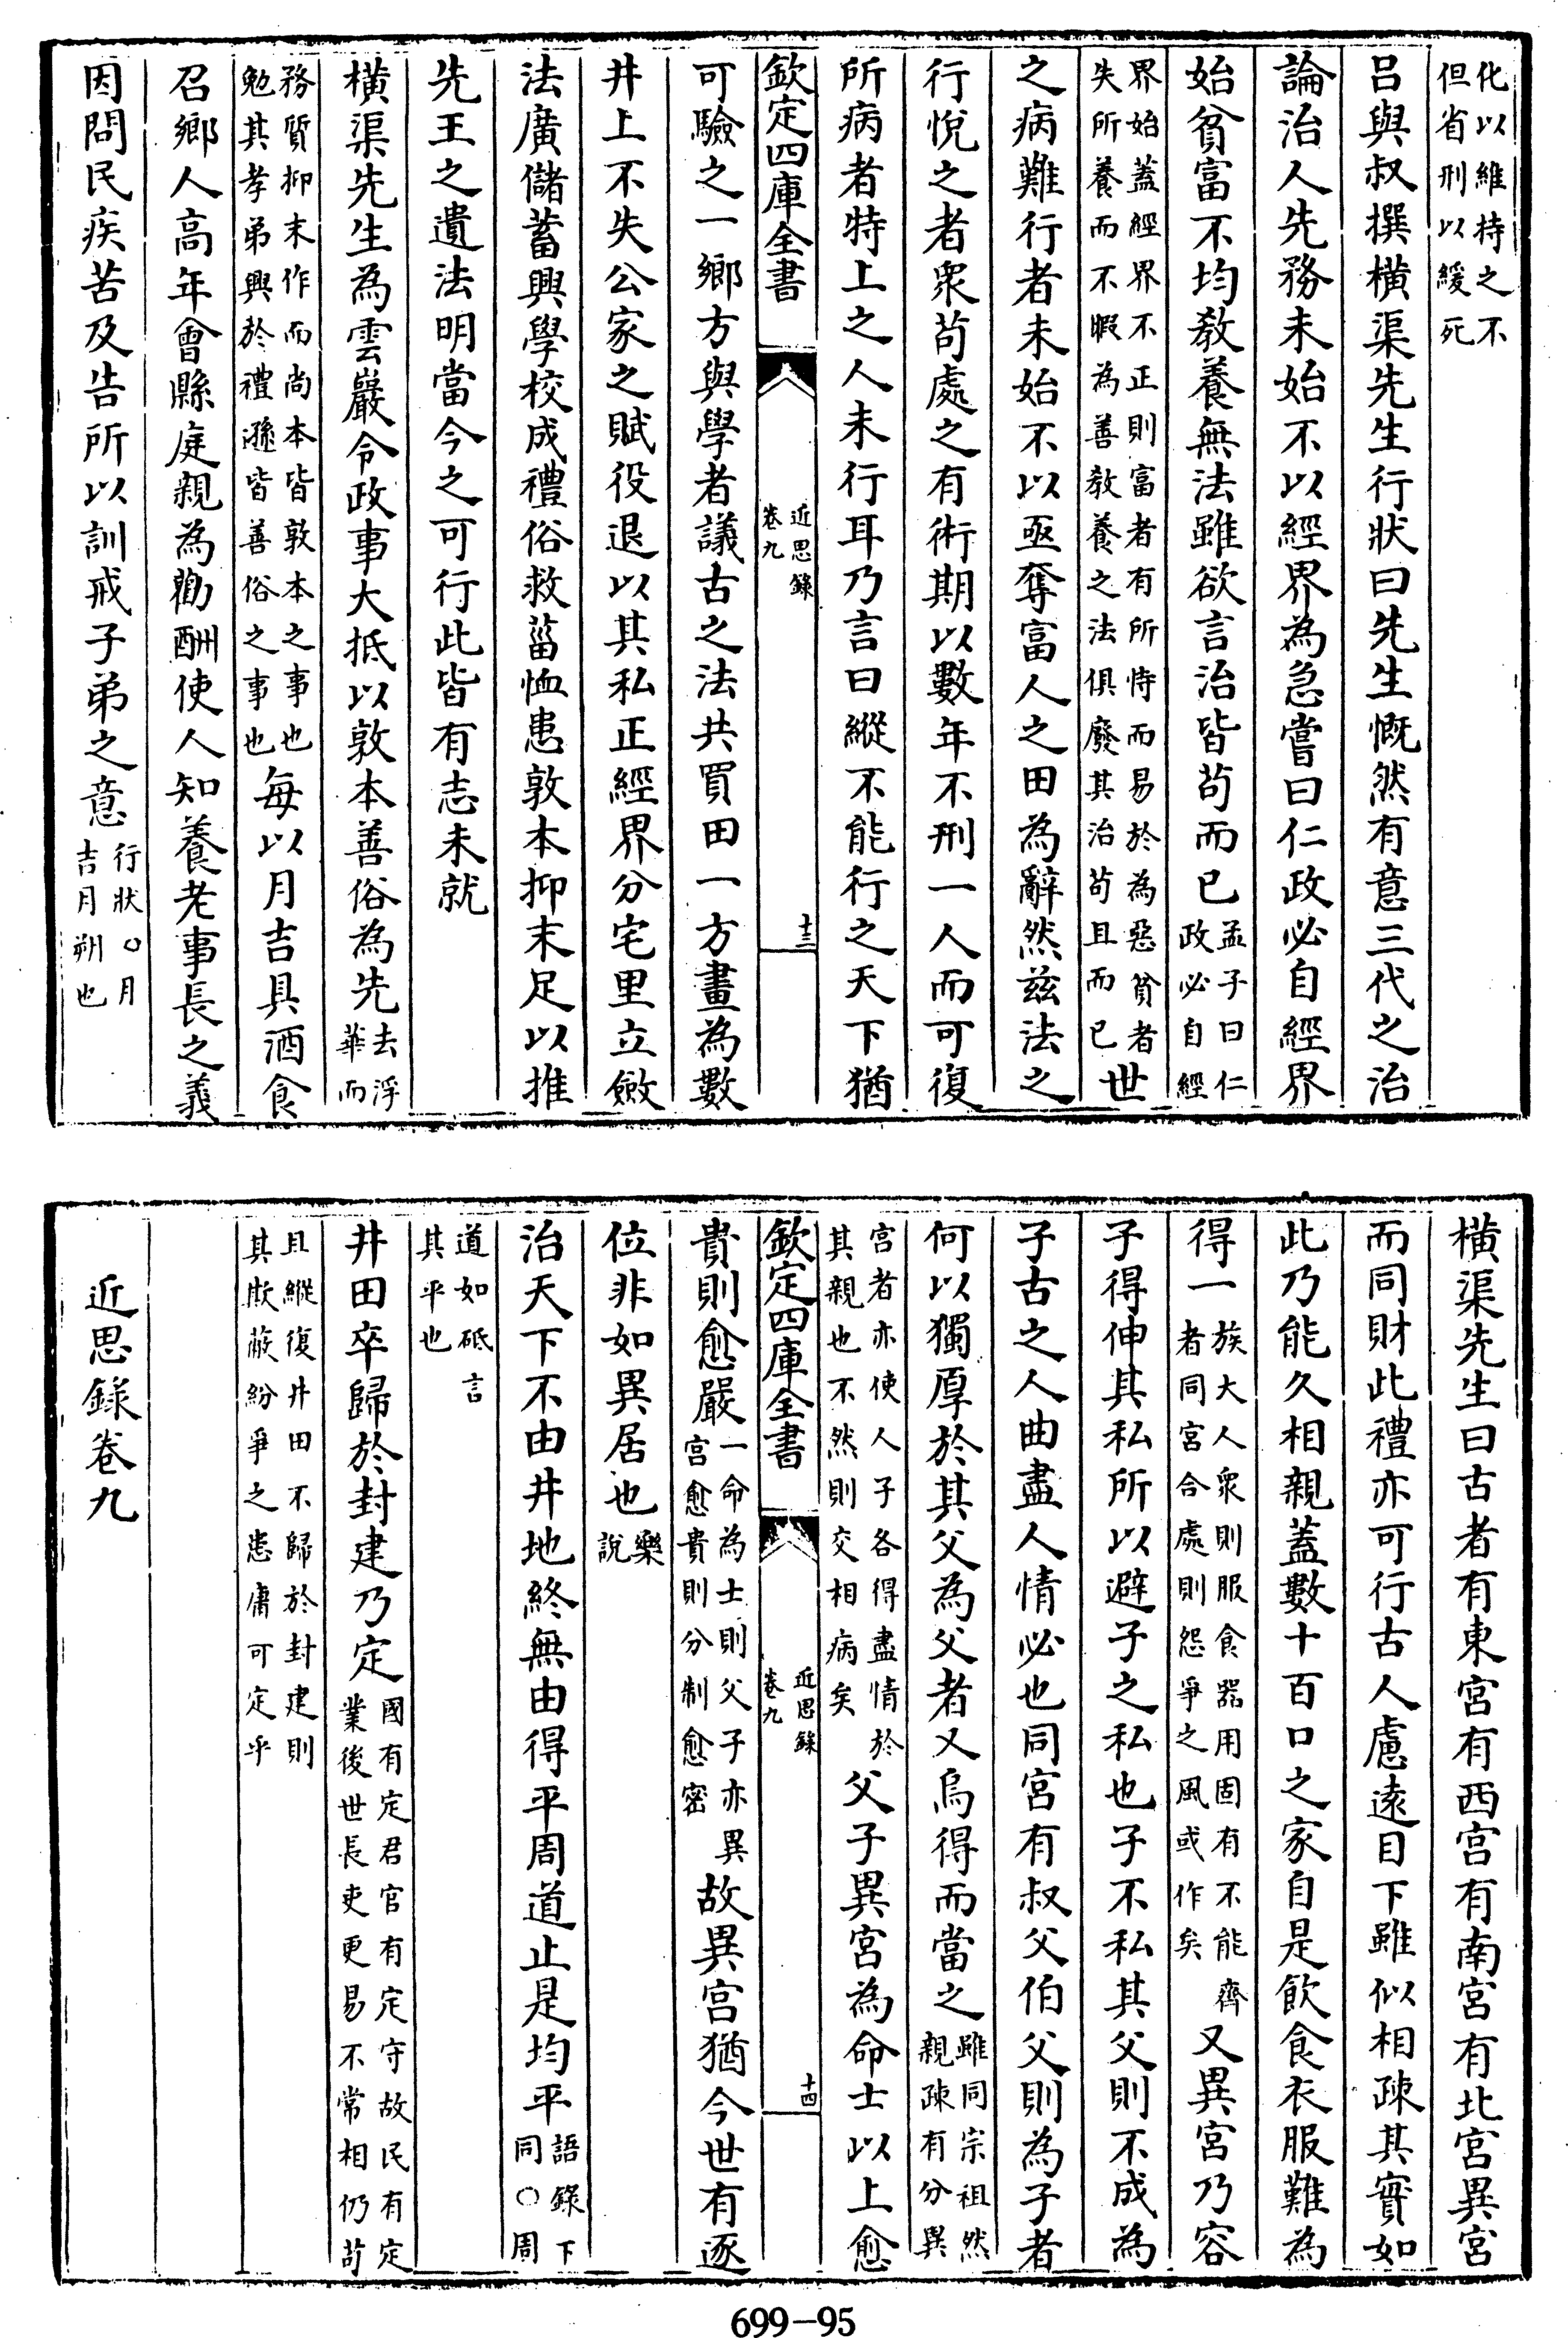 化以維持之不
但省刑以緩死
呂與叔撰橫渠先生行狀曰先生慨然有意三代之治
論治人先務未始不以經界為急嘗曰仁政必自經界
始貧富不均教養無法雖欲言治皆茍而已孟子曰仁政必自經
界始蓋經界不正則富者有所恃而易於為惡貧者失所養而不暇為善教養之法俱廢其治茍且而已世
之病難行者未始不以亟奪富人之田為辭然茲法之
行悅之者衆茍處之有術期以數年不刑一人而可復
所病者特上之人未行耳乃言曰縱不能行之天下猶
欽定四庫全書
近思錄
卷九
十三
可驗之一鄉方與學者議古之法共買田一方畫為數
井上不失公家之賦役退以其私正經界分宅里立斂
法廣儲蓄興學校成禮俗救菑恤患敦本抑末足以推
先王之遺法明當今之可行此皆有志未就
橫渠先生為雲巖令政事大抵以敦本善俗為先去浮華而
務質抑末作而尚本皆敦本之事也勉其孝弟興於禮遜皆善俗之事也每以月吉具酒食
召鄉人高年會縣庭親為勸酬使人知養老事長之義
因問民疾苦及告所以訓戒子弟之意行狀○月吉月朔也
橫渠先生曰古者有東宮有西宮有南宮有北宮異宮
而同財此禮亦可行古人慮遠目下雖似相疎其實如
此乃能久相親蓋數十百口之家自是飲食衣服難為
得一族大人衆則服食器用固有不能齊者同宮合處則怨爭之風或作矣又異宮乃容
子得伸其私所以避子之私也子不私其父則不成為
子古之人曲盡人情必也同宮有叔父伯父則為子者
何以獨厚於其父為父者又烏得而當之雖同宗祖然親疎有分異
宮者亦使人子各得盡情於其親也不然則交相病矣父子異宮為命士以上愈
欽定四庫全書
近思錄
卷九
十四
貴則愈嚴一命為士則父子亦異宮愈貴則分制愈密故異宮猶今世有逐
位非如異居也樂說
治天下不由井地終無由得平周道止是均平語錄下同○周
道如砥言其平也
井田卒歸於封建乃定國有定君官有定守故民有定業後世長吏更易不常相仍茍
且縱復井田不歸於封建則其欺蔽紛爭之患庸可定乎
近思錄卷九
699-95